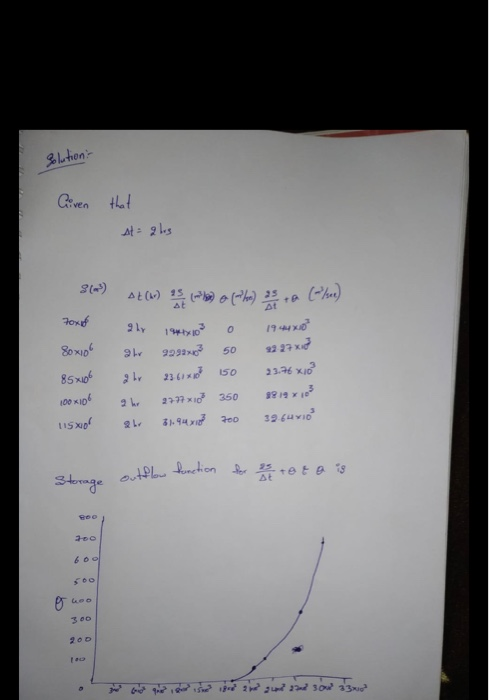 Solution:-
Given that
Δt = 2 hrs
S(m³) Δt (hr) 2S/Δt Q (m³/sec) 2S/Δt + Q (m³/sec)
70x10⁶ 2 hr 19.44x10³ 0 19.44x10³
80x10⁶ 2 hr 22.22x10³ 50 22.27x10³
85x10⁶ 2 hr 23.61x10³ 150 23.76x10³
100x10⁶ 2 hr 27.77x10³ 350 28.12x10³
115x10⁶ 2 hr 31.94x10³ 700 32.64x10³
Storage outflow function for 2S/Δt + Q & Q is
800
700
600
500
Q 400
300
200
100
0 3x10³ 6x10³ 9x10³ 12x10³ 15x10³ 18x10³ 21x10³ 24x10³ 27x10³ 30x10³ 33x10³